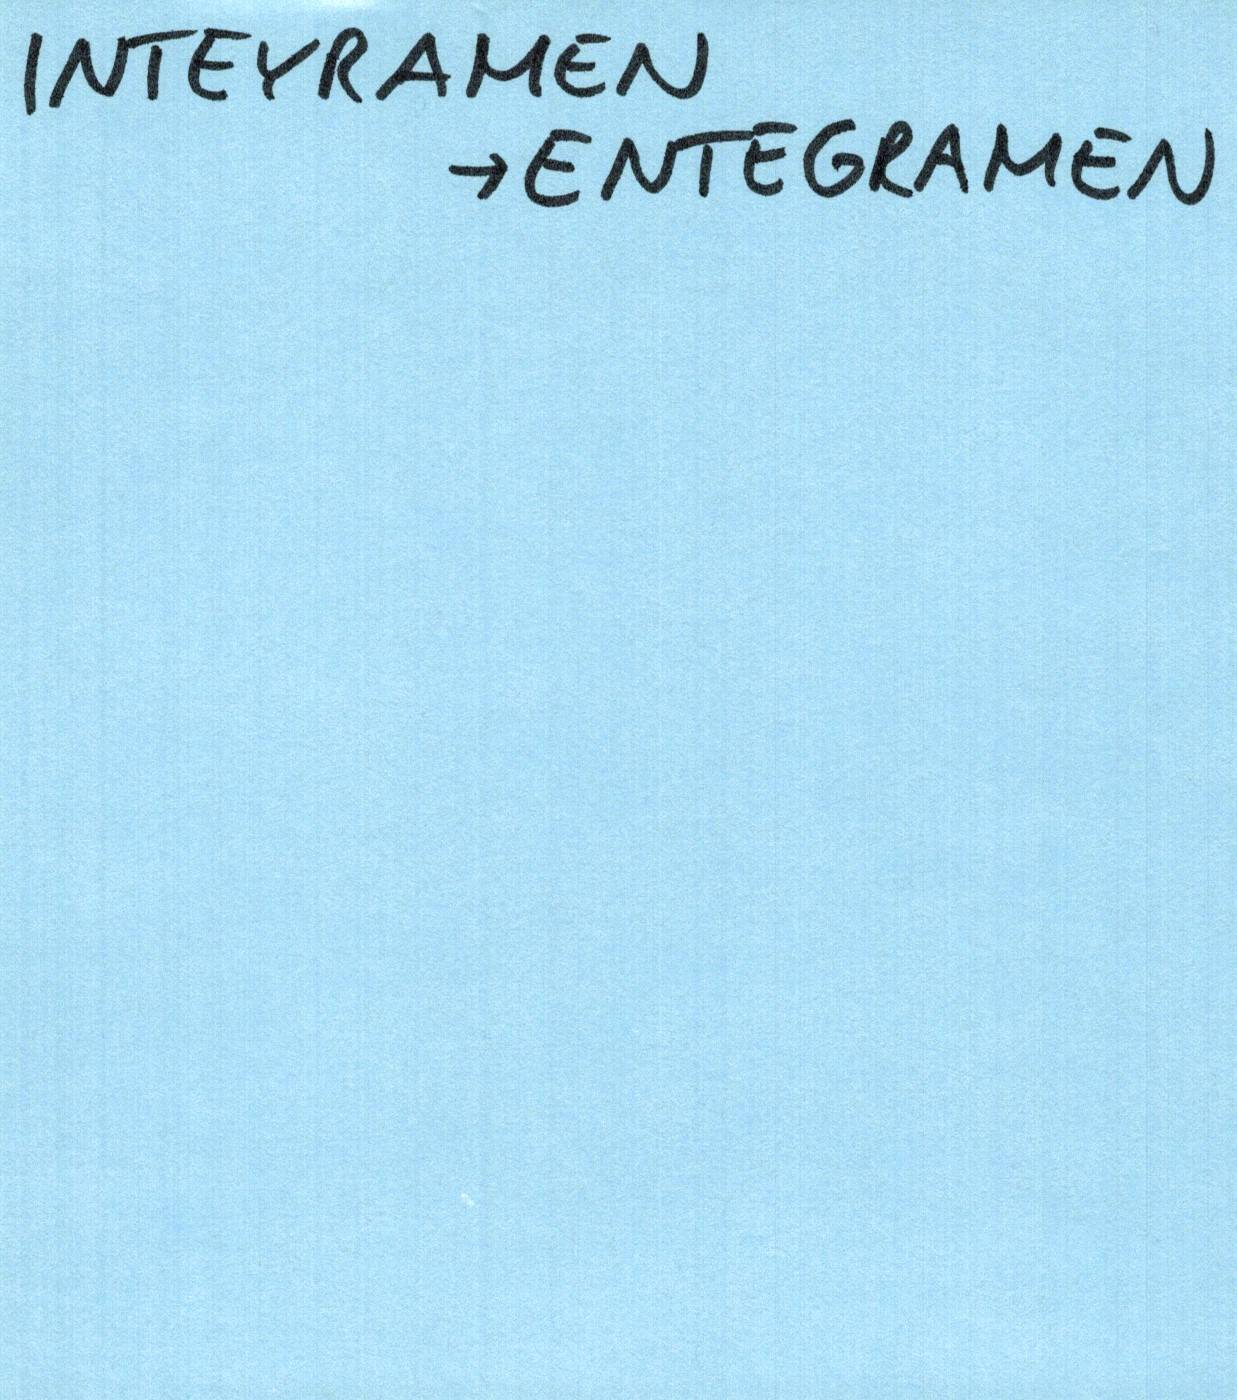 INTEYRAMEN
→ENTEGRAMEN